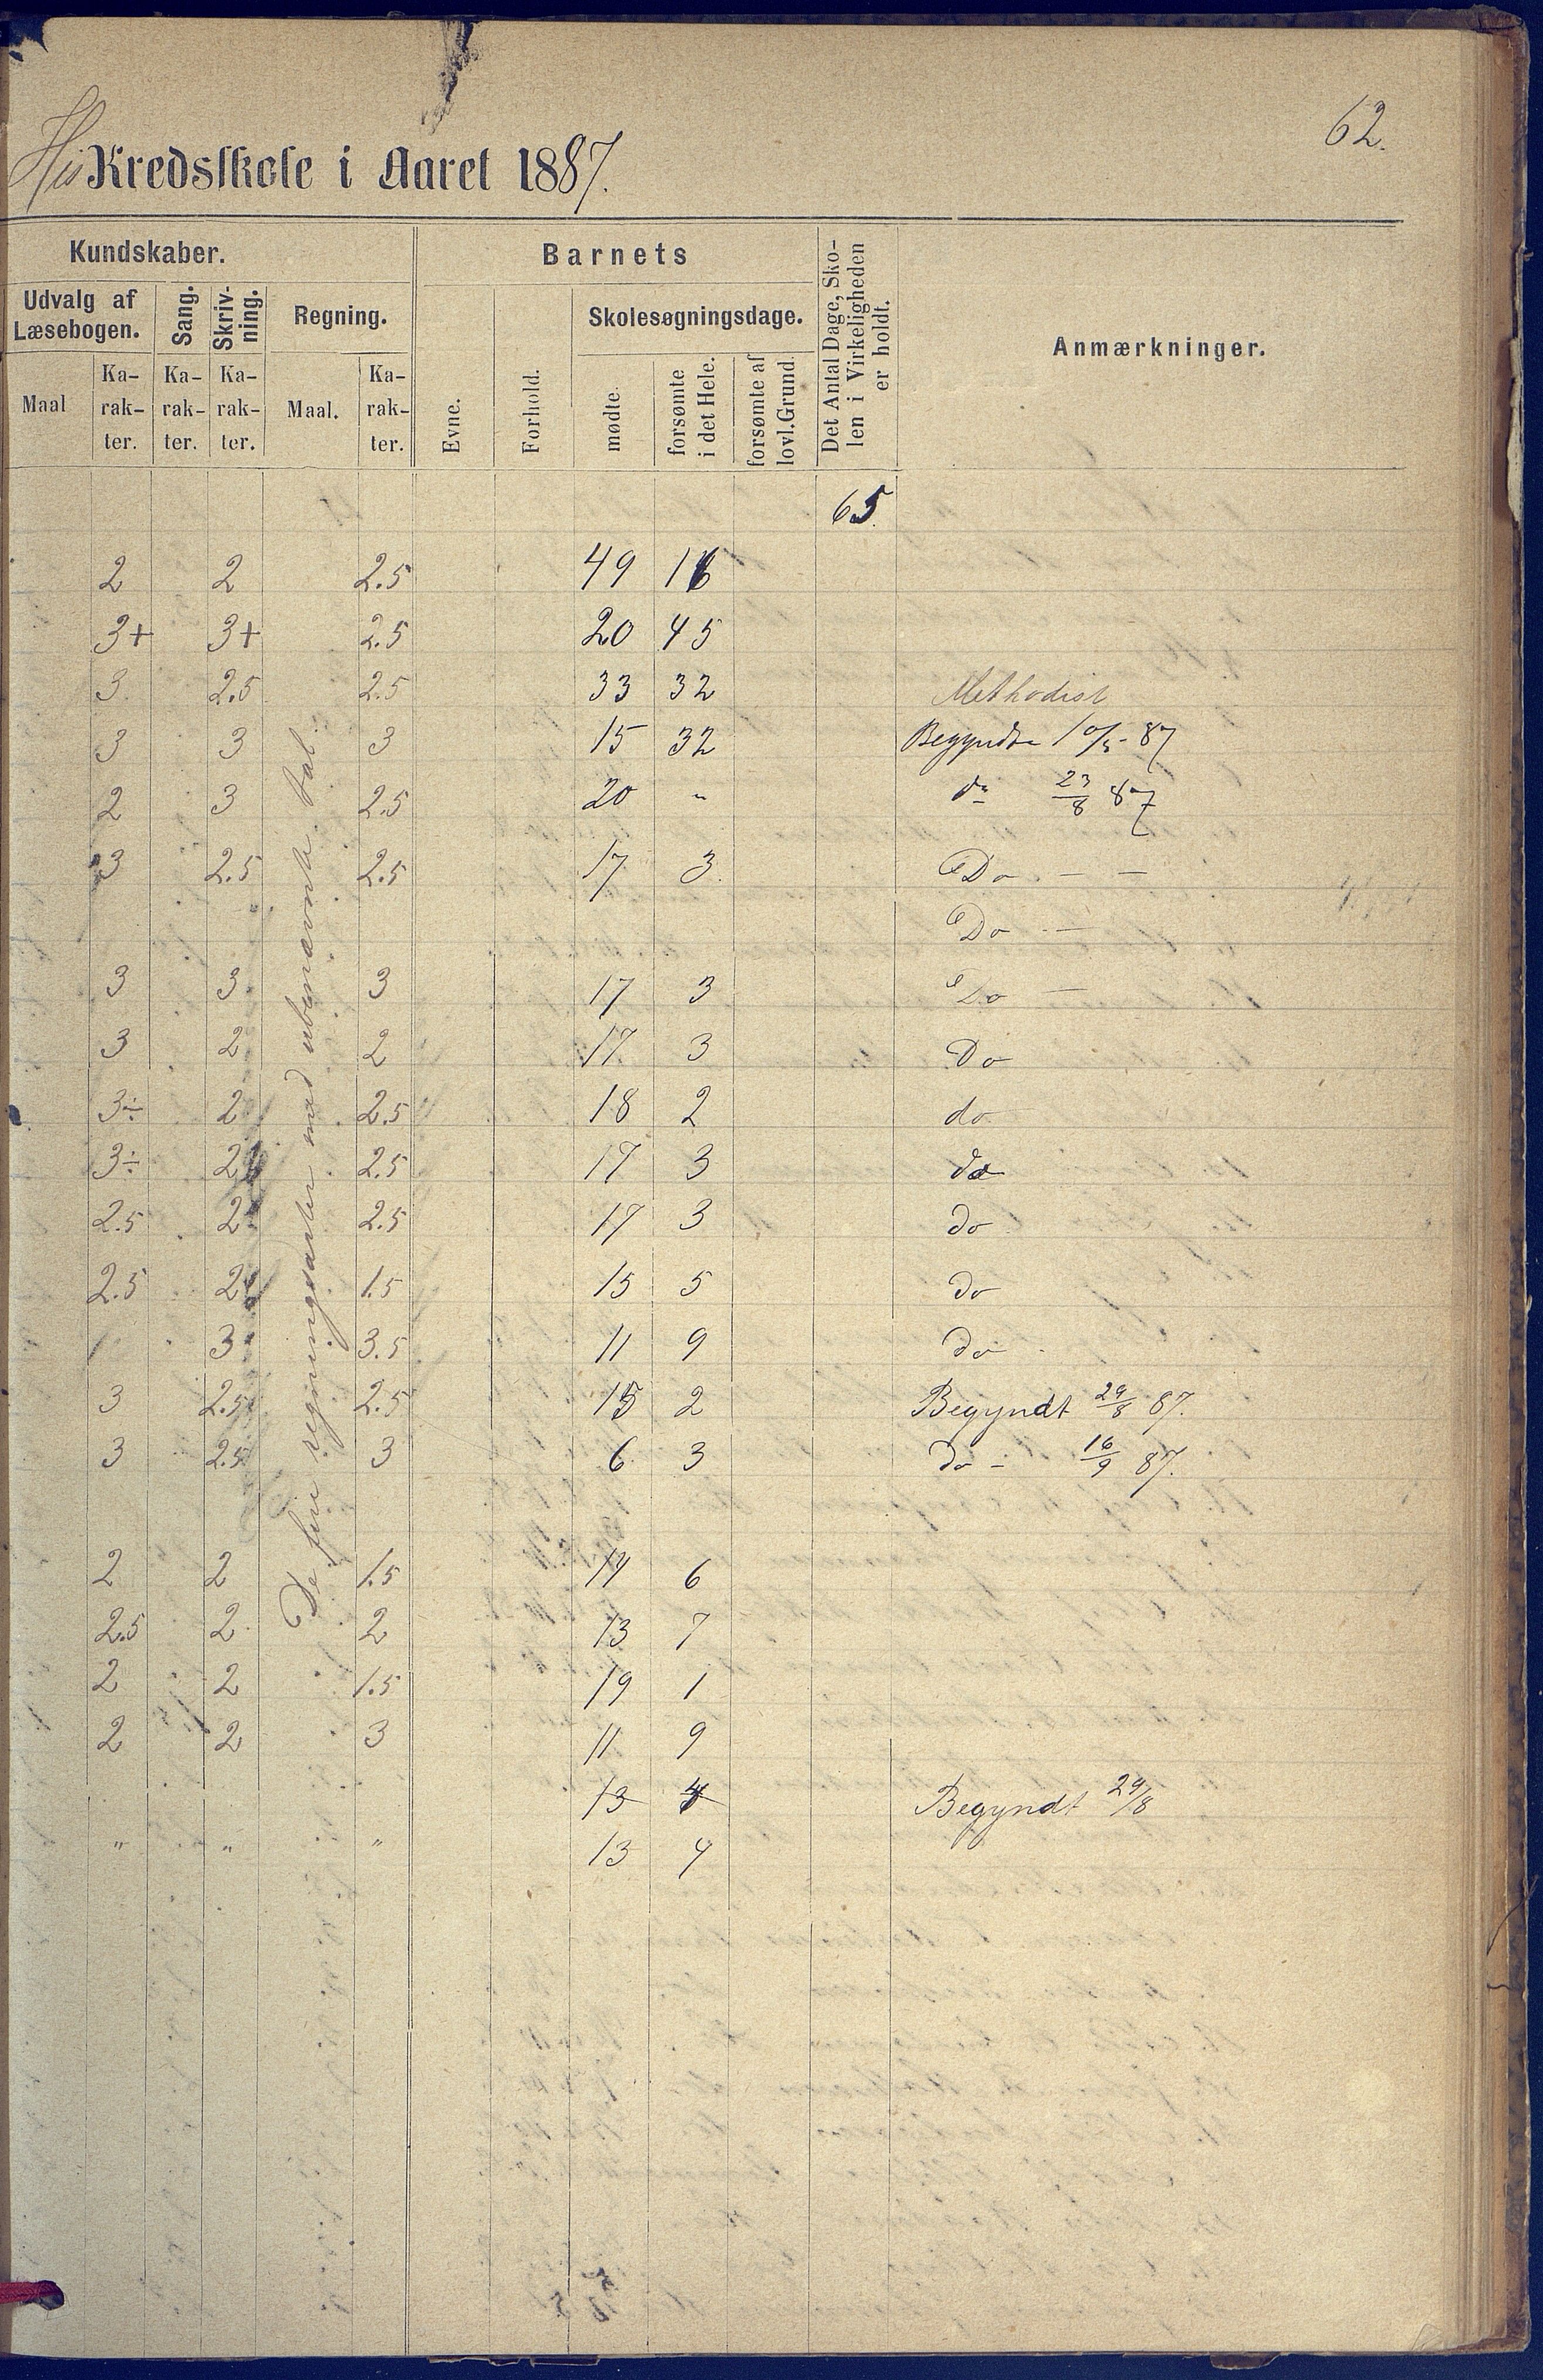 62.
His Kredsskole i Aaret 1887.
Kundskaber. Barnets Det Antal Dage, Sko- len i Virkeligheden er holdt. Anmærkninger.
Udvalg af Læsebogen. Sang. Skriv- ning. Regning. Evne. Forhold. Skolesøgningsdage.
Maal Ka- rak- ter. Ka- rak- ter. Ka- rak- ter. Maal. Ka- rak- ter. mødte. forsømte i det Hele. forsømte af lovl. Grund.
De fire regningsarter med ubenævnte tal.
65.
2 2 2.5 49 16
3+ 3+ 2.5 20 45
3 2.5 2.5 33 32 Methodist
3 3 3 15 32 Begyndte 10/5 - 87
2 3 2.5 20 " do 23/8 87
3 2.5 2.5 17 3 Do - -
Do -
3 3 3 17 3 Do -
3 2 2 17 3 Do
3÷ 2 2.5 18 2 do
3÷ 2 2.5 17 3 do
2.5 2 2.5 17 3 do
2.5 2 1.5 15 5 do
3 3.5 11 9 do
3 2.5 2.5 15 2 Begyndt 29/8 87.
3 2.5 3 6 3 do - 16/9 87.
2 2 1.5 14 6
2.5 2 2 13 7
2 2 1.5 19 1
2 2 3 11 9
13 4 Begyndt 29/8
" " " 13 4